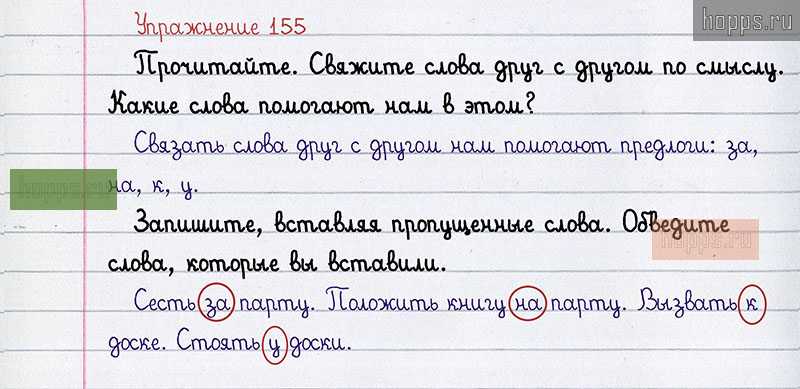 Упражнение 155
hopps.ru
Прочитайте. Свяжите слова друг с другом по смыслу.
Какие слова помогают нам в этом?
Связать слова друг с другом нам помогают предлоги: за,
hopps.ru
на, к, у.
Запишите, вставляя пропущенные слова. Обведите
hopps.ru
слова, которые вы вставили.
Сесть за парту. Положить книгу на парту. Вызвать к
доске. Стоять у доски.